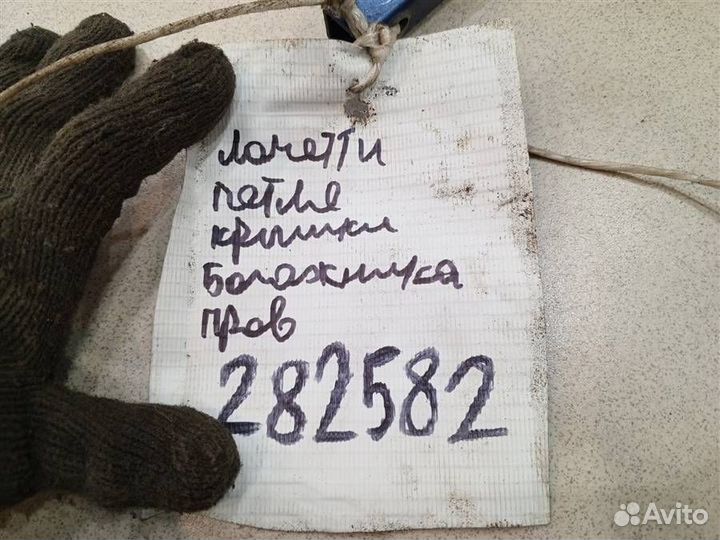 Лачетти
петля
крышки
Багажника
прав
282582
Avito